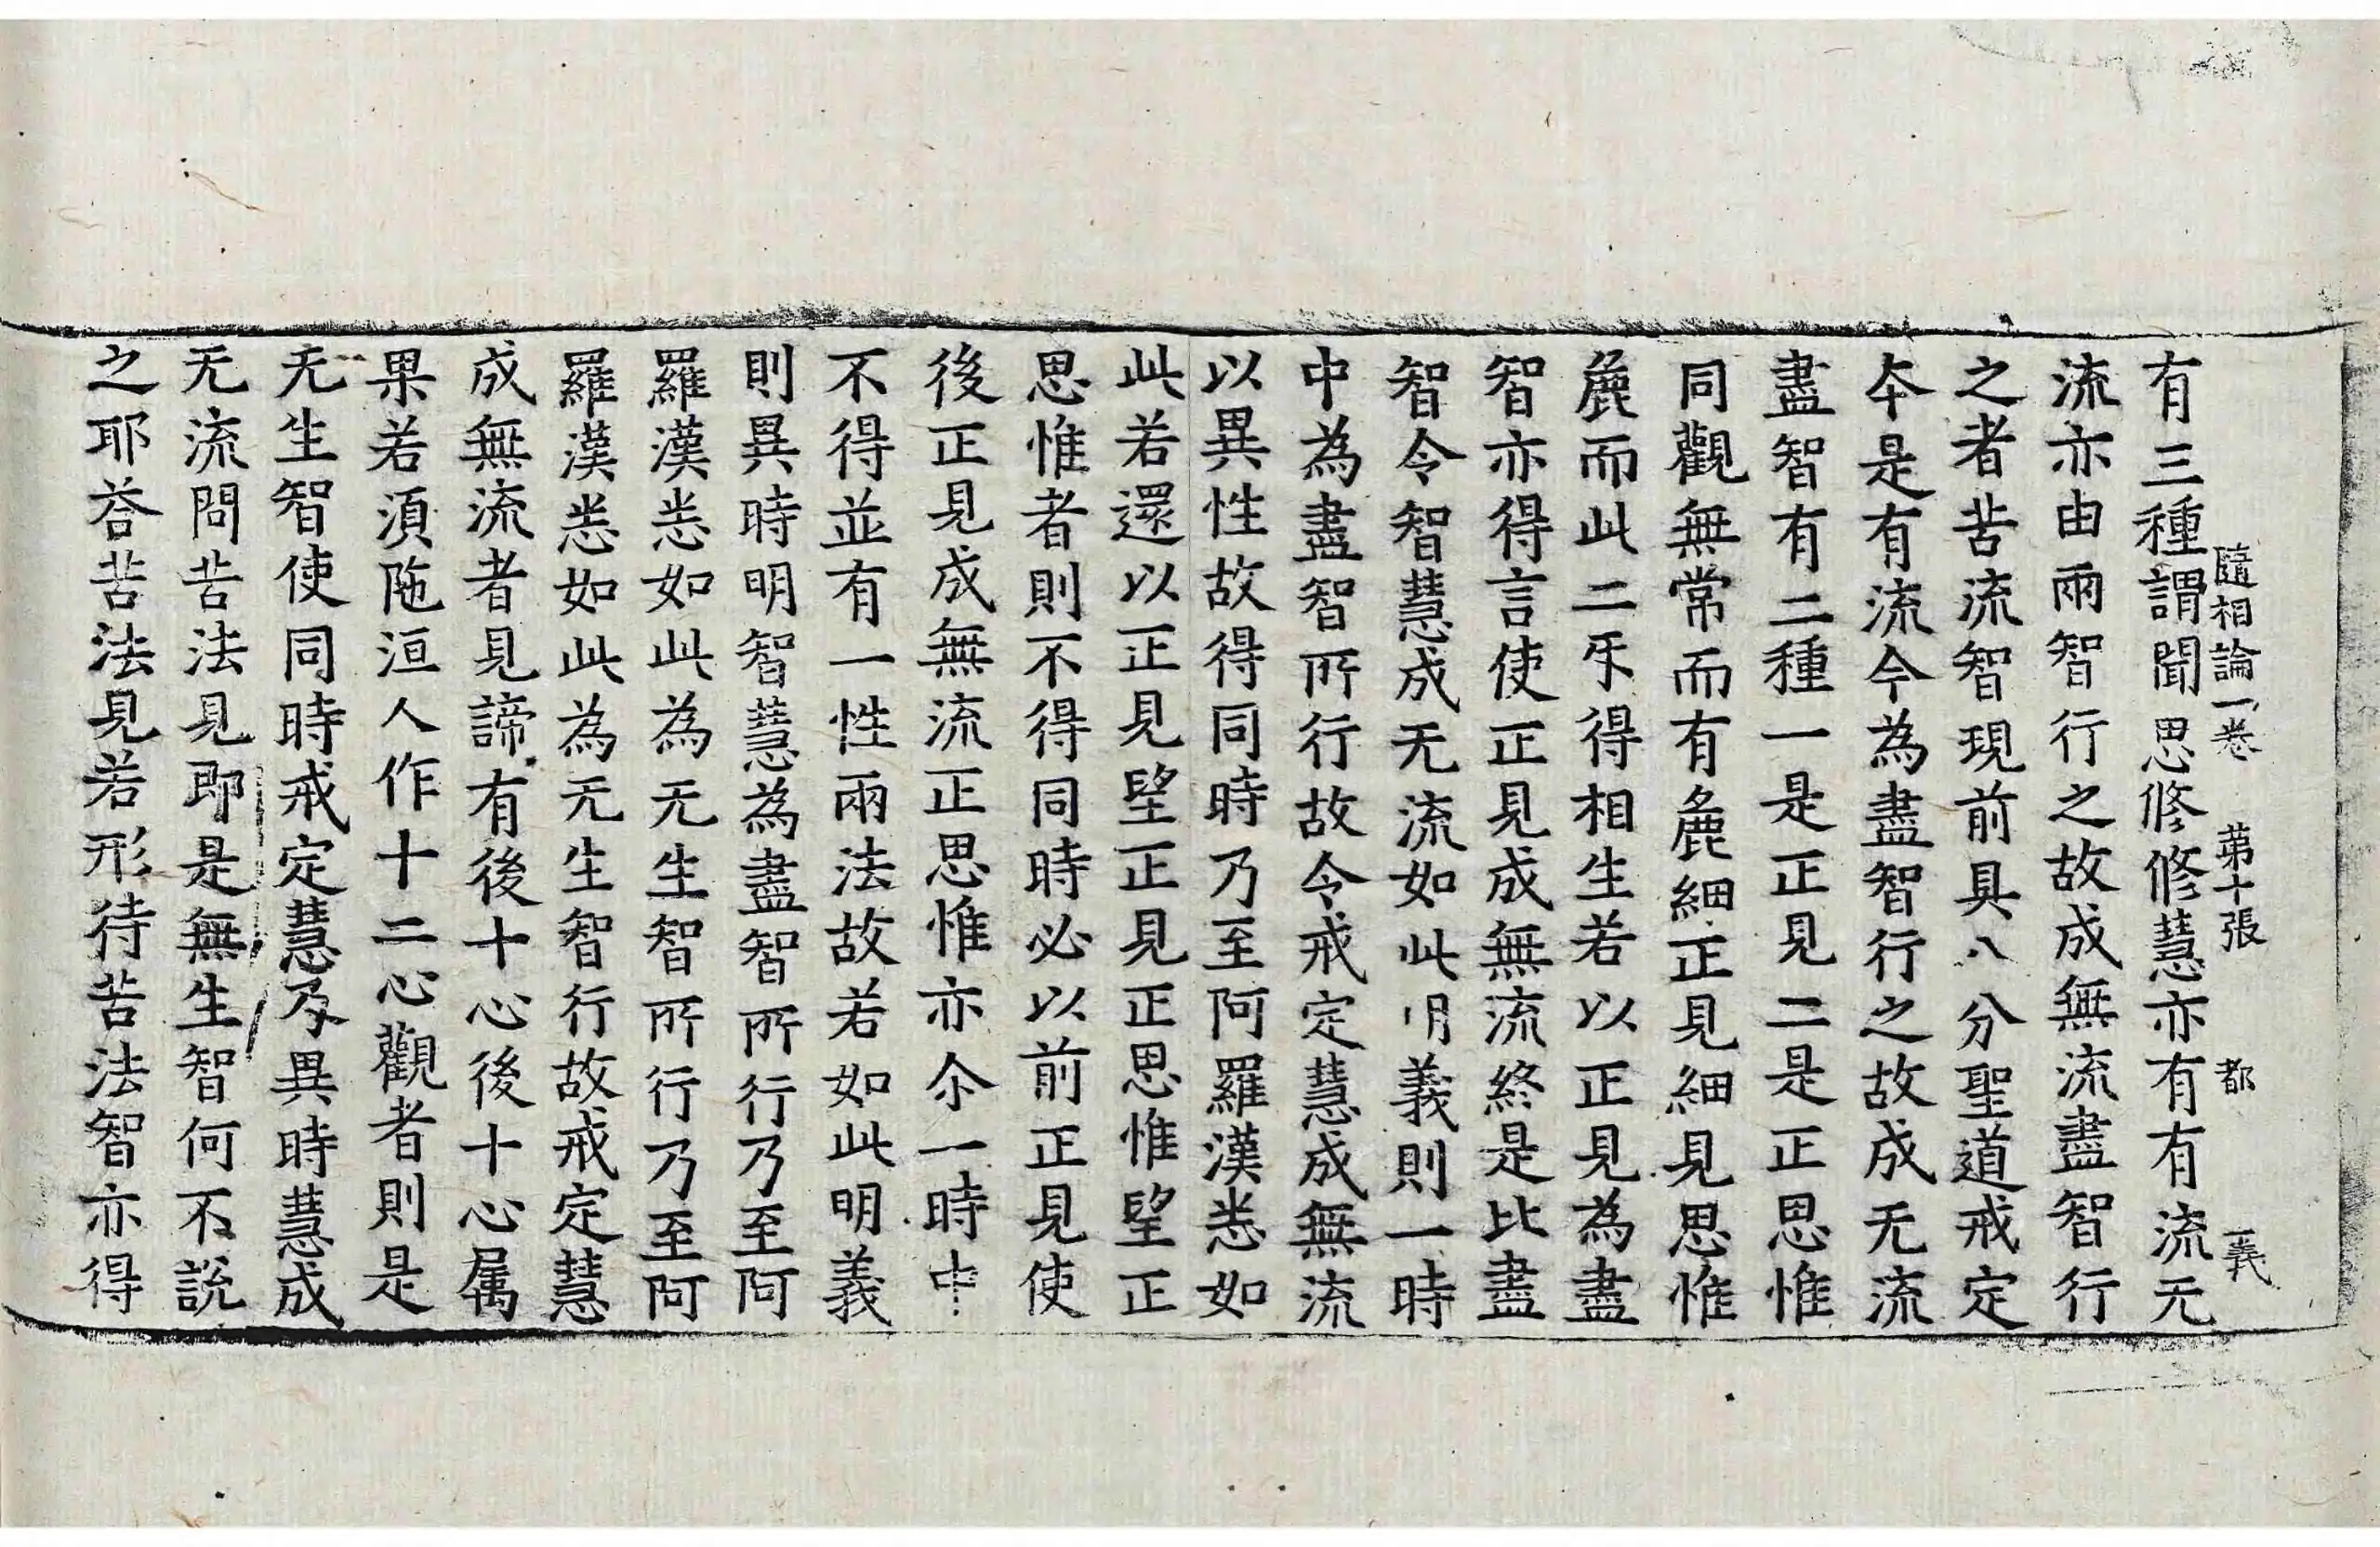 隨相論一卷 第十張 都 義
有三種謂聞思修修慧亦有有流无
流亦由兩智行之故成無流盡智行
之者苦流智現前具八分聖道戒定
夲是有流今為盡智行之故成无流
盡智有二種一是正見二是正思惟
同觀無常而有麁細正見細見思惟
麁而此二乐得相生若以正見為盡
智亦得言使正見成無流終是比盡
智令智慧成无流如此明義則一時
中為盡智所行故令戒定慧成無流
以異性故得同時乃至阿羅漢悉如
此若還以正見望正見正思惟望正
思惟者則不得同時必以前正見使
後正見成無流正思惟亦尒一時中
不得並有一性兩法故若如此明義
則異時明智慧為盡智所行乃至阿
羅漢悉如此為无生智所行乃至阿
羅漢悉如此為无生智行故戒定慧
成無流者見諦有後十心後十心属
果若湏陁洹人作十二心觀者則是
无生智使同時戒定慧及異時慧成
无流問苦法見即是無生智何不說
之耶荅苦法見若形待苦法智亦得